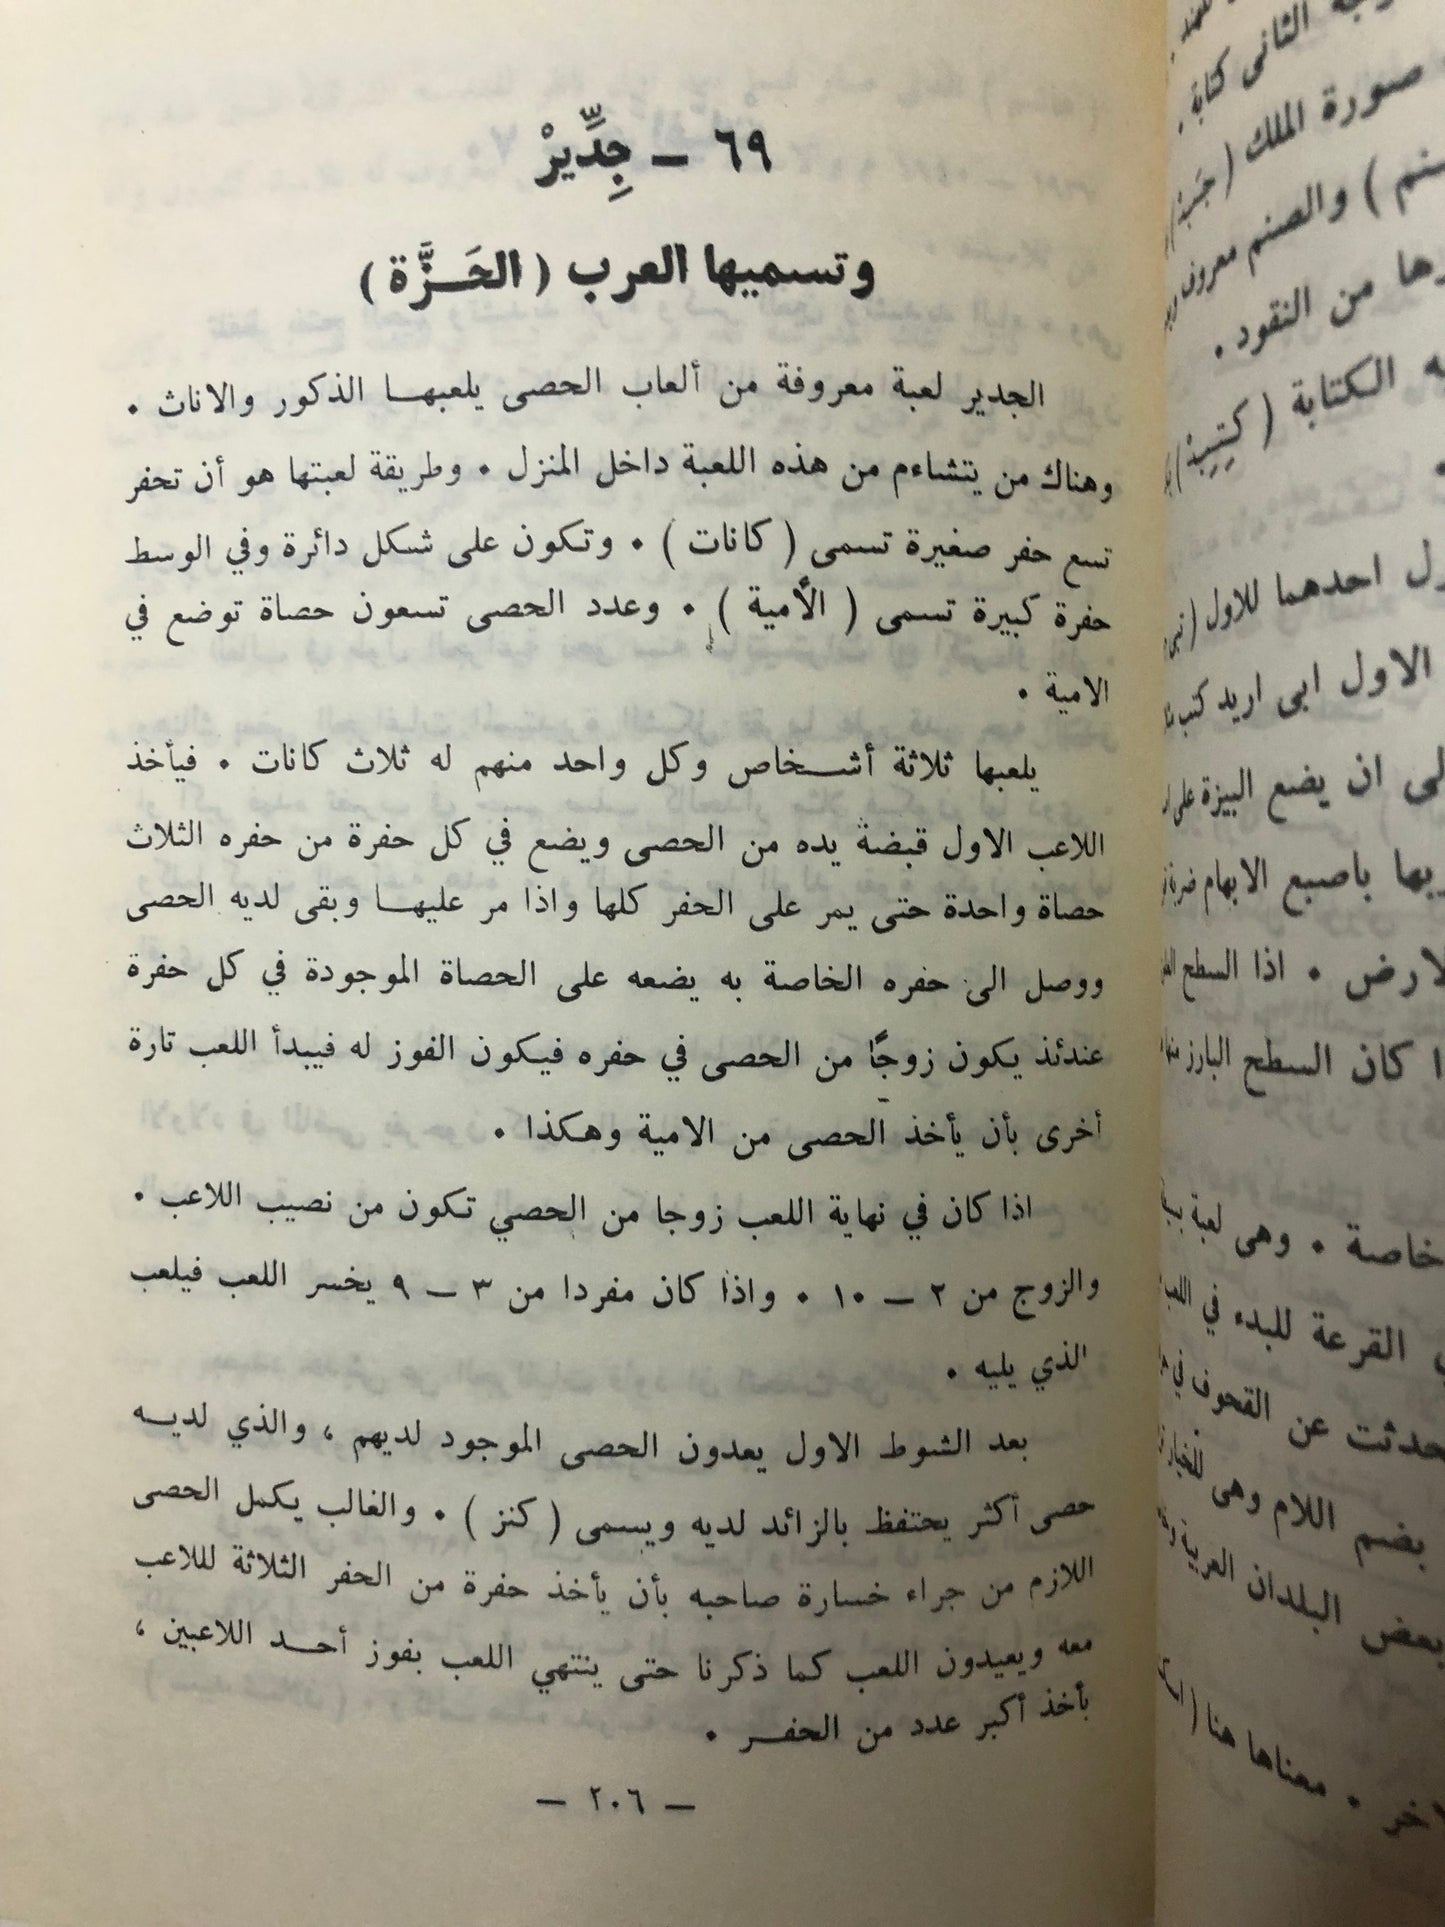 ٦٩ — جِدِّيرْ
وتسميها العرب ( الحَــزَّة )
الجدير لعبة معروفة من ألعاب الحصى يلعبهــا الذكور والاناث .
وهناك من يتشاءم من هذه اللعبة داخل المنزل . وطريقة لعبتها هو أن تحفر
تسع حفر صغيرة تسمى ( كانات ) . وتكون على شكل دائرة وفي الوسط
حفرة كبيرة تسمى ( الأمية ) . وعدد الحصى تسعون حصاة توضع في
الامية .
يلعبها ثلاثة أشــخاص وكل واحد منهم له ثلاث كانات . فيأخذ
اللاعب الاول قبضة يده من الحصى ويضع في كل حفرة من حفره الثلاث
حصاة واحدة حتى يمر على الحفر كلها واذا مر عليهــا وبقى لديه الحصى
ووصل الى حفره الخاصة به يضعه على الحصاة الموجودة في كل حفرة
عندئذ يكون زوجًا من الحصى في حفره فيكون الفوز له فيبدأ اللعب تارة
أخرى بأن يأخذ الحصى من الامية وهكذا .
اذا كان في نهاية اللعب زوجا من الحصي تكون من نصيب اللاعب .
والزوج من ٢ — ١٠ . واذا كان مفردا من ٣ — ٩ يخسر اللعب فيلعب
الذي يليه .
بعد الشوط الاول يعدون الحصى الموجود لديهم ، والذي لديــه
حصى أكثر يحتفظ بالزائد لديه ويسمى ( كنز ) . والغالب يكمل الحصى
اللازم من جراء خسارة صاحبه بأن يأخذ حفرة من الحفر الثلاثة لللاعب
معه ويعيدون اللعب كما ذكرنا حتى ينتهي اللعب بفوز أحــد اللاعبين ،
بأخذ أكبر عدد من الحفــر .
— ٢٠٦ —
الثانى كتابة .
صورة الملك
والصنم معروف
من النقود .
الكتابة (
احدهما للاول
الاول ابى اريد
ان يضع البيزة على
باصبع الابهام
اذا السطح
كان السطح البارز
وهى لعبة
القرعة للبدء في
عن القحوف في
بضم اللام وهى
البلدان العربية
معناها هنا (